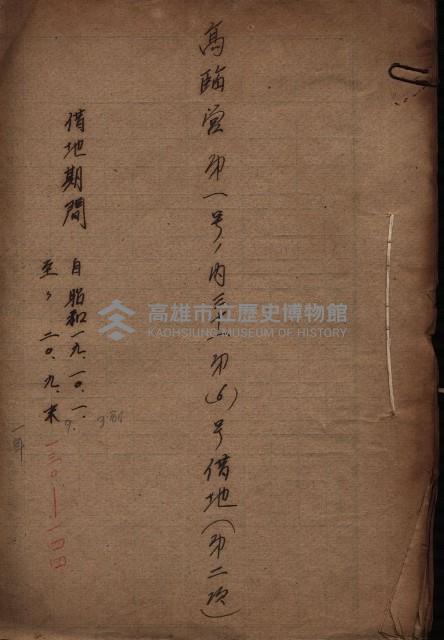 高臨営第一号ノ内三ノ一第(6)号借地(第二次)
借地期間
自昭和一九.一〇.一.
至〃二〇.九.末
一三〇—一四四
高雄市立歷史博物館
KAOHSIUNG MUSEUM OF HISTORY